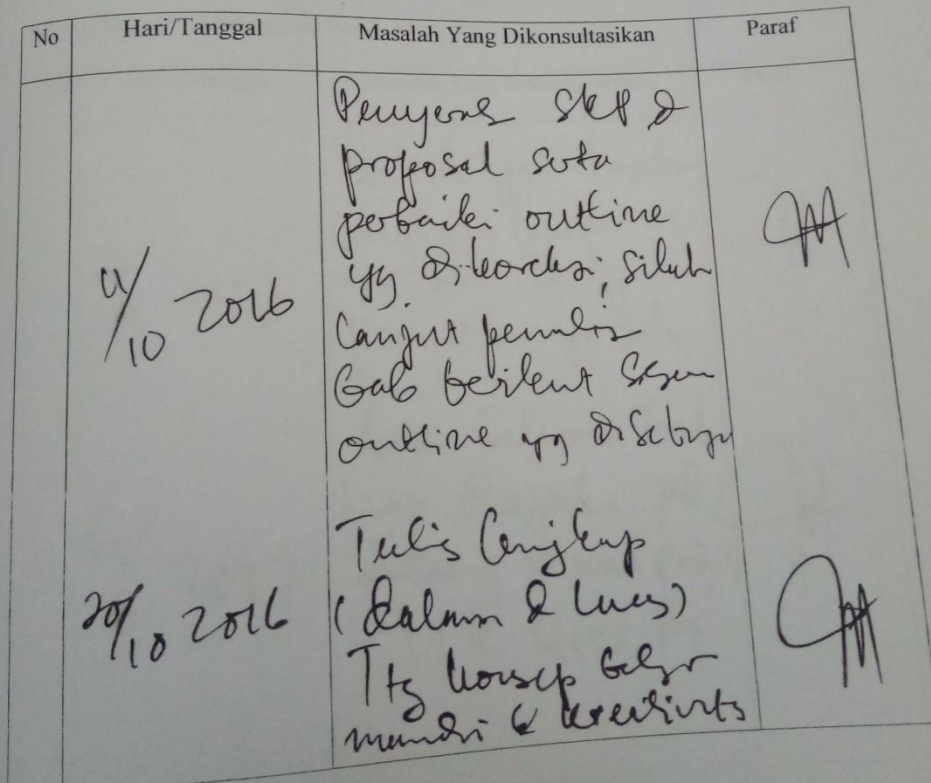 No Hari/Tanggal Masalah Yang Dikonsultasikan Paraf
11/10 2016
Penyerah SKP &
proposal serta
perbaiki outline
yg dikoreksi, silah
lanjut penulis
bab berikut sesuai
outline yg disetujui
20/10 2016
Tulis lengkap
(dalam & luas)
Ttg konsep belajar
mandiri & kreativitas